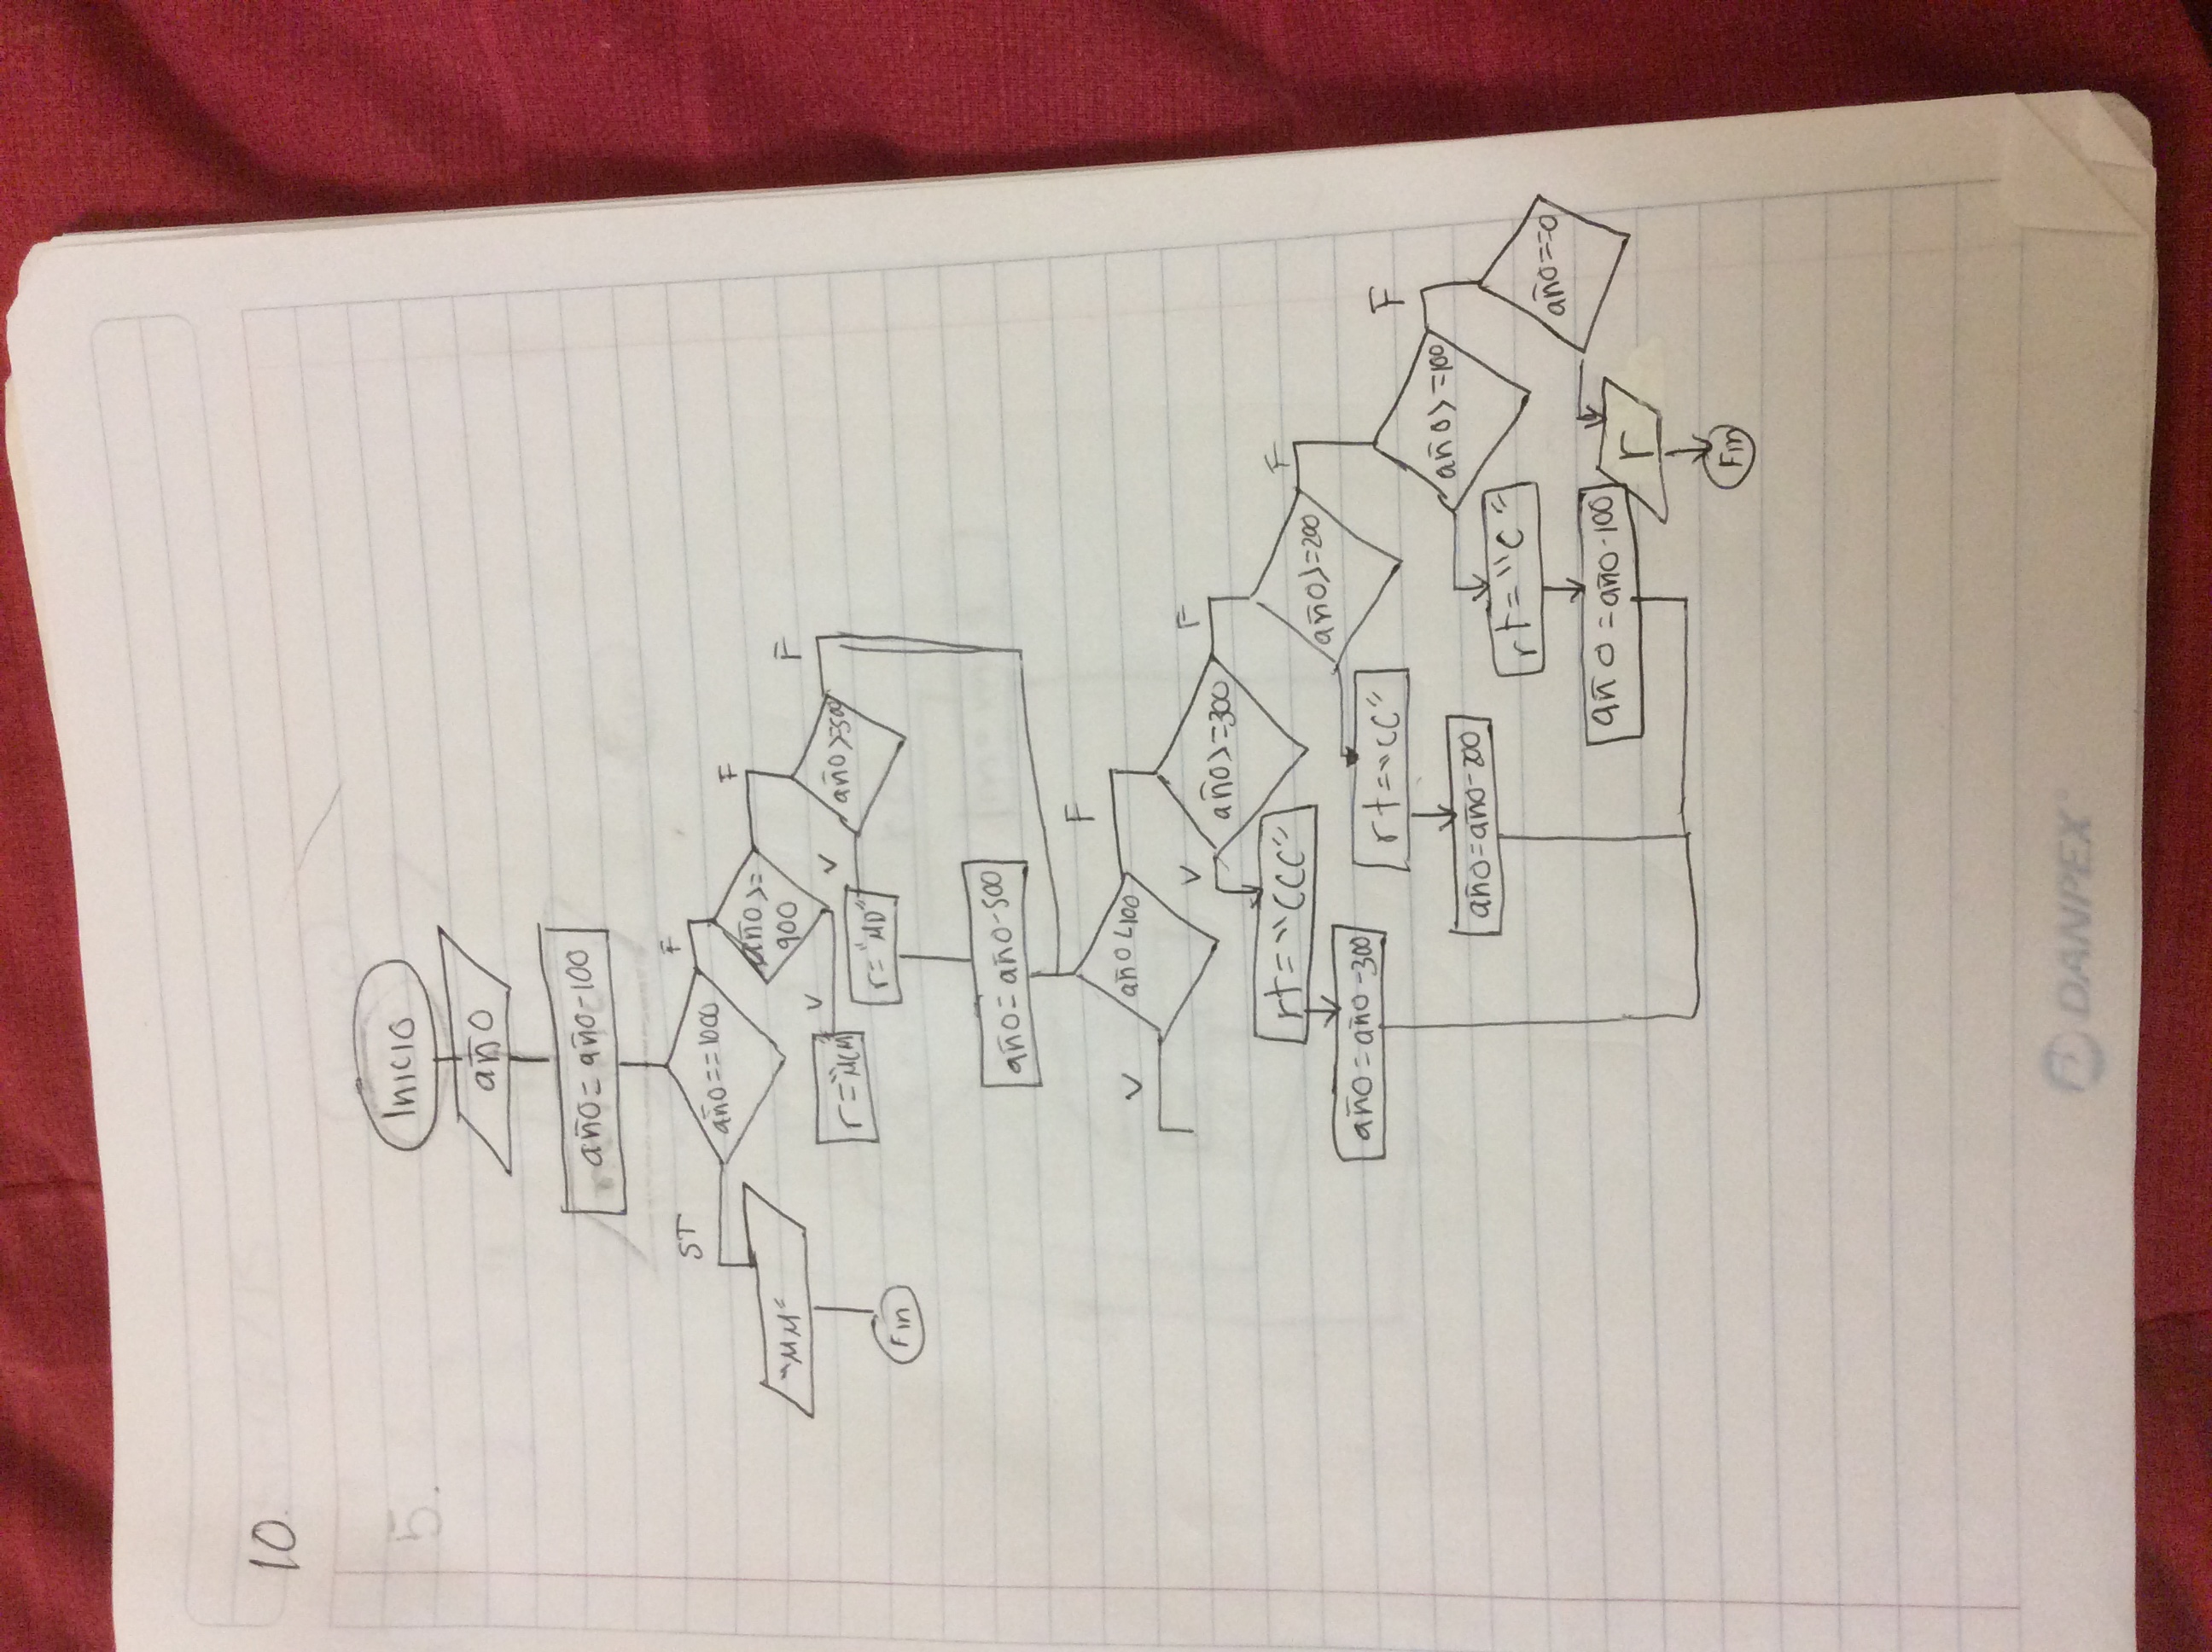 10.
5.
Inicio
año
año=año-100
año==1000
ST
F
"MM"
Fin
año>=
900
V
F
r="MCM"
año>=500
V
F
r="MD"
año=año-500
año<100
V
F
año>=300
V
F
r+="CCC"
año=año-300
año>=200
F
r+="CC"
año=año-200
año>=100
F
r+="C"
año=año-100
año==0
r
Fin
DANPEX